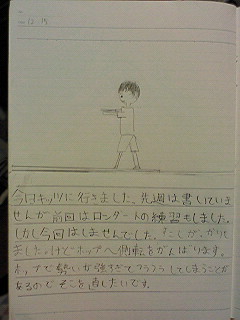 今日キッツに行きました。先週は書していま
せんが前回はロンダートの練習もしました。
しかし今回はしませんでした。
ました。けどホップへ側転をがんばります。
ホップで勢いが強すぎてフラフラしてしまうことが
あるのでそこを直したいです。